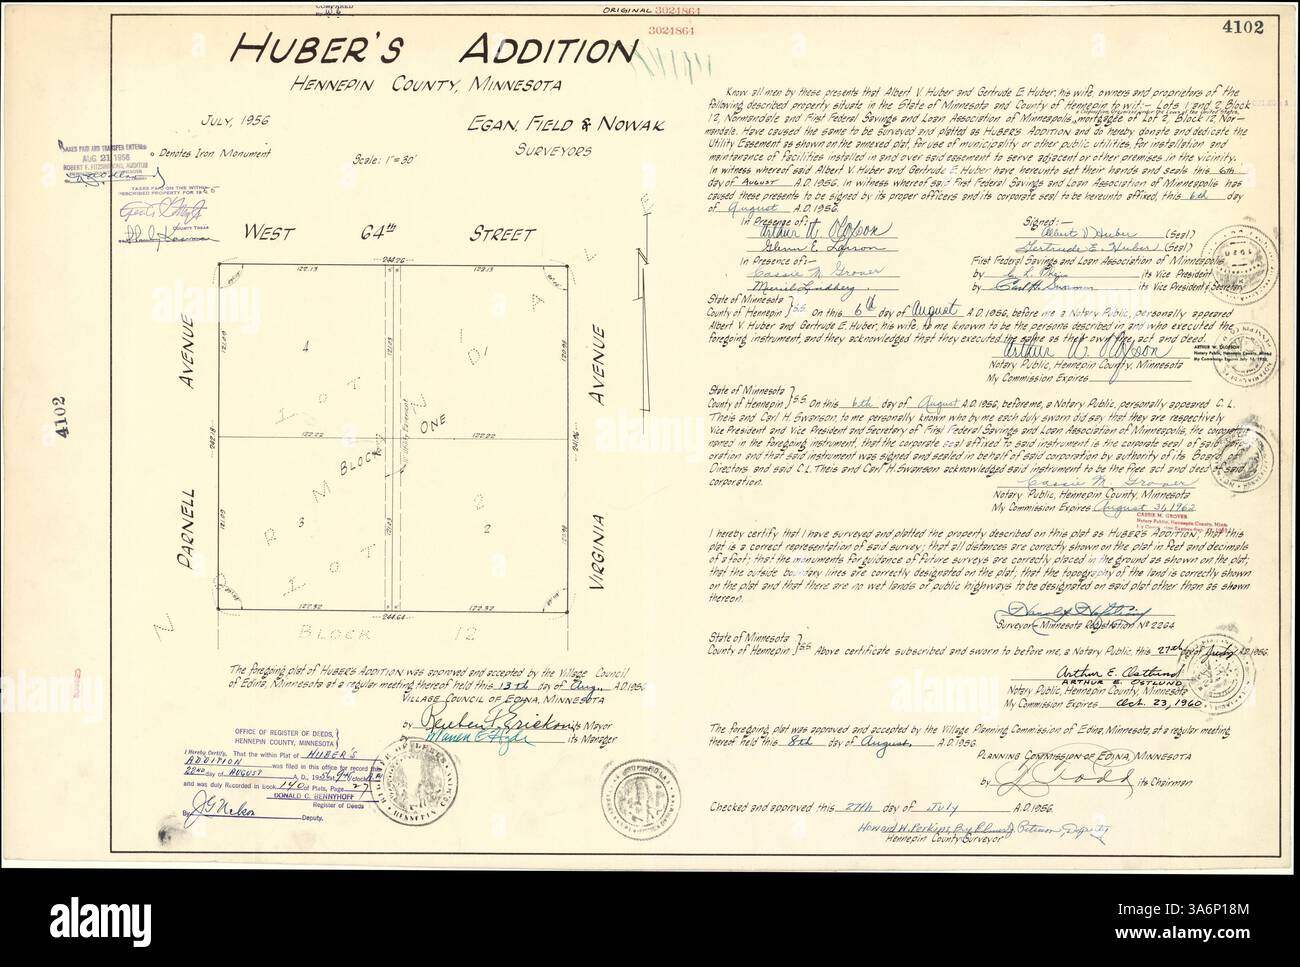 ORIGINAL 3024864
3024864
4102
HUBER'S ADDITION
HENNEPIN COUNTY, MINNESOTA
JULY, 1956
EGAN, FIELD & NOWAK
SURVEYORS
o Denotes Iron Monument
Scale: 1"=30'
TAXES PAID AND TRANSFER ENTERED
AUG 21 1956
WEST 64th STREET
PARNELL AVENUE
VIRGINIA AVENUE
244.26
122.13
122.13
4
1
121.09
121.03
LOT
BLOCK ONE
Utility Easement
122.22
122.22
242.18
3
2
LOT
122.32
122.32
244.64
BLOCK 12
4102
Know all men by these presents that Albert V. Huber and Gertrude E. Huber, his wife, owners and proprietors of the
following described property situate in the State of Minnesota and County of Hennepin to wit:- Lots 1 and 2, Block
12, Normandale and First Federal Savings and Loan Association of Minneapolis, mortgagee of Lot 2, Block 12, Nor-
mandale. Have caused the same to be surveyed and platted as HUBER'S ADDITION and do hereby donate and dedicate the
Utility Easement as shown on the annexed plat, for use of municipality or other public utilities, for installation and
maintenance of facilities installed in and over said easement to serve adjacent or other premises in the vicinity.
In witness whereof said Albert V. Huber and Gertrude E. Huber have hereunto set their hands and seals this 6th
day of August A.D. 1956. In witness whereof said First Federal Savings and Loan Association of Minneapolis has
caused these presents to be signed by its proper officers and its corporate seal to be hereunto affixed, this 6th day
of August A.D. 1956.
In Presence of:- Signed:-
Arthur W. Olofson Albert V Huber (Seal)
Glenn E. Larson Gertrude E Huber (Seal)
In Presence of:- First Federal Savings and Loan Association of Minneapolis
Cassie M. Grover by C L Theis its Vice President
Muriel Lindberg by Carl H. Swanson its Vice President & Secretary
State of Minnesota
County of Hennepin } SS On this 6th day of August A.D. 1956, before me a Notary Public, personally appeared
Albert V. Huber and Gertrude E. Huber, his wife, to me known to be the persons described in and who executed the
foregoing instrument, and they acknowledged that they executed the same as their own free act and deed.
Arthur W. Olofson
Notary Public, Hennepin County, Minnesota
My Commission Expires
ARTHUR W. OLOFSON
Notary Public, Hennepin County, Minn.
State of Minnesota
County of Hennepin } SS On this 6th day of August A.D. 1956, before me, a Notary Public, personally appeared C. L.
Theis and Carl H. Swanson, to me personally known who by me each duly sworn did say that they are respectively
Vice President and Vice President and Secretary of First Federal Savings and Loan Association of Minneapolis, the corporation
named in the foregoing instrument, that the corporate seal affixed to said instrument is the corporate seal of said corp-
oration and that said instrument was signed and sealed in behalf of said corporation by authority of its Board of
Directors and said C.L. Theis and Carl H. Swanson acknowledged said instrument to be the free act and deed of said
corporation.
Cassie M. Grover
Notary Public, Hennepin County, Minnesota
My Commission Expires August 31, 1962
CASSIE M. GROVER
Notary Public, Hennepin County, Minn.
I hereby certify that I have surveyed and platted the property described on this plat as HUBER'S ADDITION; that this
plat is a correct representation of said survey; that all distances are correctly shown on the plat in feet and decimals
of a foot; that the monuments for guidance of future surveys are correctly placed in the ground as shown on the plat;
that the outside boundary lines are correctly designated on the plat; that the topography of the land is correctly shown
on the plat and that there are no wet lands or public highways to be designated on said plat other than as shown
thereon.
Surveyor - Minnesota Registration No 2264
State of Minnesota
County of Hennepin } SS Above certificate subscribed and sworn to before me, a Notary Public, this 27th day of July A.D. 1956.
Arthur E. Ostlund
ARTHUR E. OSTLUND
Notary Public, Hennepin County, Minnesota
My Commission Expires Oct. 23, 1960
The foregoing plat of HUBER'S ADDITION was approved and accepted by the Village Council
of Edina, Minnesota at a regular meeting thereof held this 13th day of Aug., A.D. 1956
VILLAGE COUNCIL OF EDINA, MINNESOTA
by Reuben F. Erickson its Mayor
by Warren C Hyde its Manager
The foregoing plat was approved and accepted by the Village Planning Commission of Edina, Minnesota, at a regular
meeting thereof held this 8th day of August, A.D. 1956
PLANNING COMMISSION OF EDINA, MINNESOTA
by its Chairman
Checked and approved this 27th day of July A.D. 1956.
Howard H. Perkins, By Deputy
Hennepin County Surveyor
OFFICE OF REGISTER OF DEEDS,
HENNEPIN COUNTY, MINNESOTA
I Hereby Certify, That the within Plat of HUBER'S
ADDITION was filed in this office for record this
22ND day of AUGUST A. D., 1956 at 9
and was duly Recorded in Book 140 of Plats, Page 27
DONALD C. BENNYHOFF
Register of Deeds
By J G Nelson Deputy.
alamy
Image ID: 3A6P18M
www.alamy.com